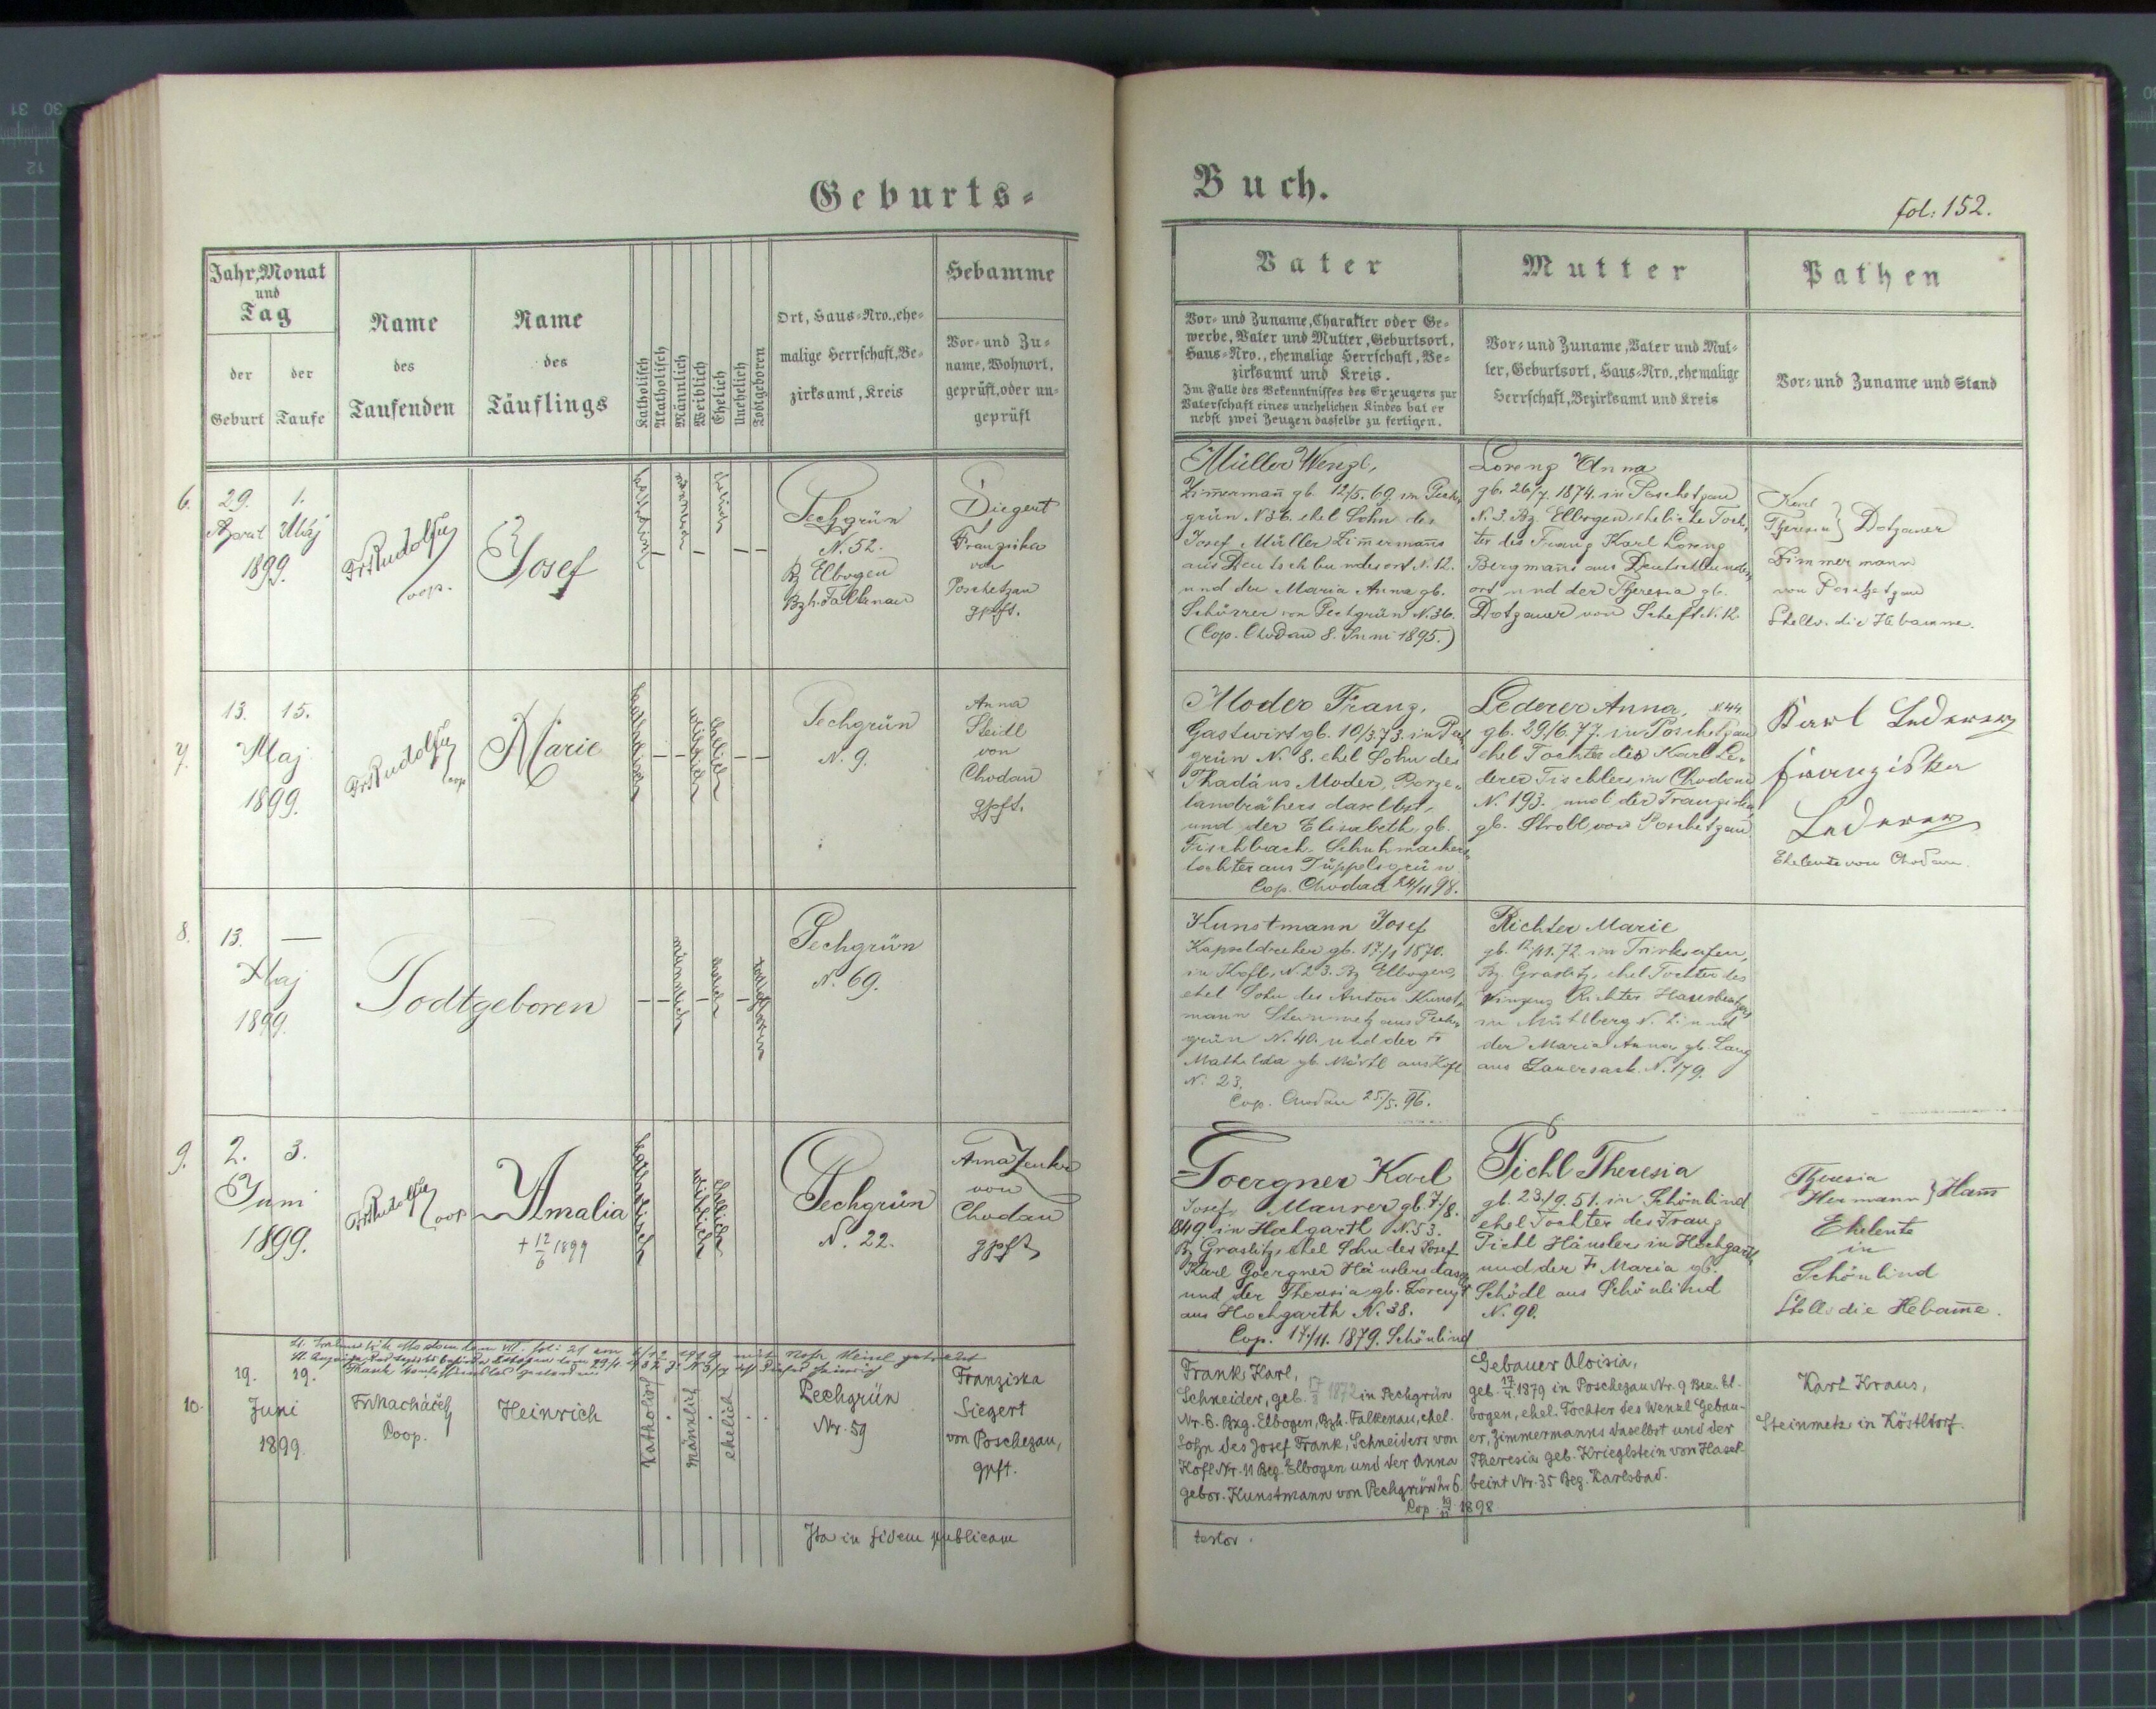 Geburts-
Buch.
fol: 152.
Jahr, Monat
und
Tag
der
Geburt
der
Taufe
Name
des
Taufenden
Name
des
Täuflings
Katholisch
Akatholisch
Männlich
Weiblich
Ehelich
Unehelich
Todtgeboren
Ort, Haus-Nro., ehe-
malige Herrschaft, Be-
zirksamt, Kreis
Hebamme
Vor- und Zu-
name, Wohnort,
geprüft, oder un-
geprüft
Vater
Vor- und Zuname, Charakter oder Ge-
werbe, Vater und Mutter, Geburtsort,
Haus-Nro., ehemalige Herrschaft, Be-
zirksamt und Kreis.
Im Falle des Bekenntnisses des Erzeugers zur
Vaterschaft eines unehelichen Kindes hat er
nebst zwei Zeugen dasselbe zu fertigen.
Mutter
Vor- und Zuname, Vater und Mut-
ter, Geburtsort, Haus-Nro., ehemalige
Herrschaft, Bezirksamt und Kreis
Pathen
Vor- und Zuname und Stand
6.
29. 1.
April Maj
1899.
Coop.
Josef
katholisch
männlich
ehelich
Pechgrün
N. 52.
Bz Elbogen
Bzh. Falkenau
Franziska
von
Poschetzau
gpft.
Müller Wenzl,
Zimmermañ gb. 12/5. 69. in Pech-
grün N 36. ehel Sohn des
Josef Müller Zimmermañs
aus Deutschbundesort N. 12.
und der Maria Anna gb.
von Pechgrün N. 36.
(Cop. Chodau 8. Juni 1895.)
Lorenz Anna
gb. 26/7. 1874. in Poschetzau
N. 3. Bz. Elbogen, eheliche Toch-
ter des Franz Karl Lorenz
Bergmañs aus Deutschbundes-
ort und der Theresia gb.
Dotzauer von N. 12.
Karl
Theresia } Dotzauer
Zimmermann
von Poschetzau
Stellv. die Hebamme.
7.
13. 15.
Maj
1899.
Coop
Marie
katholisch
weiblich
ehelich
Pechgrün
N. 9.
Anna
Steidl
von
Chodau
gpft.
Moder Franz,
Gastwirt gb. 10/3. 73. in Pech-
grün N. 8. ehel Sohn des
Thadäus Moder, Porze-
landrähers daselbst,
und der Elisabeth gb.
Fischbach, Schuhmachers-
tochter aus Tüppelsgrün.
Cop. Chodau 24/11 98.
Lederer Anna, N 44
gb. 29/6. 77. in Poschetzau
ehel Tochter des Karl Le-
derer Tischlers in Chodau
N. 193. und der Franziska
gb. Stroll von Poschetzau
Karl Lederer
Franziska
Lederer
Eheleute von Chodau.
8.
13. —
Maj
1899.
Todtgeboren
männlich
ehelich
todtgeboren
Pechgrün
N. 69.
Kunstmann Josef
Kapseldreher gb. 17/1 1870.
in Kofl, N. 23. Bz Elbogen,
ehel Sohn des Anton Kunst-
mann Steinmetz aus Pech-
grün N. 40. und der Fr
Mathilda gb. aus Kofl
N. 23.
Cop. Chodau 25/5. 96.
Richter Marie
gb. 12/11. 72. in Trinkseifen,
Bz. Graslitz, ehel Tochter des
Vinzenz Richter Hausbesitzers
in Mühlberg N. 2. und
der Maria Anna gb. Lang
aus Sauersack. N. 179.
9.
2. 3.
Juni
1899.
Coop
Amalia
+ 12/6 1899
katholisch
weiblich
ehelich
Pechgrün
N. 22.
Anna Zenker
von
Chodau
gpft
Goergner Karl
Josef, Maurer gb. 7/8.
1849. in Hochgarth N. 53.
Bz Graslitz, ehel Sohn des Josef
Karl Goergner Häuslers das.
und der Theresia gb. Lorenz
aus Hochgarth N. 38.
Cop. 17./11. 1879. Schönlind
Pichl Theresia
gb. 23./9. 51. in Schönlind
ehel Tochter des Franz
Pichl Häusler in Hochgarth
und der Fr Maria gb.
Schödl aus Schönlind
N. 90.
Theresia
Hermann } Ham̄
Eheleute
in
Schönlind
Stellv. die Hebam̄e.
10.
19. 19.
Juni
1899.
Fr. Macháček
Coop.
Heinrich
Katholisch
männlich
ehelich
Pechgrün
Nr. 59
Franziska
Siegert
von Poschezau,
gpft.
Frank Karl,
Schneider, geb. 17/3 1872 in Pechgrün
Nr. 6. Bzg. Elbogen, Bzh. Falkenau, ehel.
Sohn des Josef Frank, Schneiders von
Kofl Nr. 11 Bez. Elbogen und der Anna
gebor. Kunstmann von Pechgrün Nr 6.
Cop. 1898
Gebauer Aloisia,
geb. 17/4. 1879 in Poschezau Nr. 9 Bez. El-
bogen, ehel. Tochter des Wenzl Gebau-
er, Zimmermanns daselbst und der
Theresia geb. Krieglstein von Hasel-
beint Nr. 35 Beg. Karlsbad.
Karl Kraus,
Steinmetz in Köstldorf.
Ita in fidem publicam
testor.